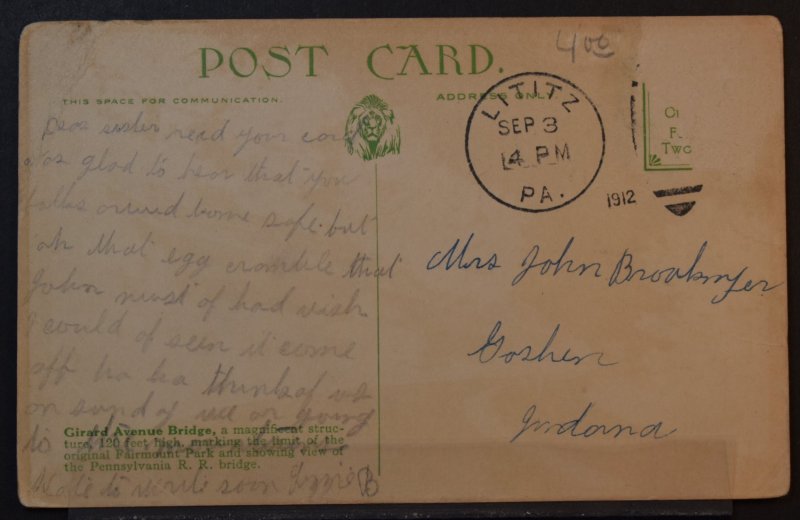 400
POST CARD.
THIS SPACE FOR COMMUNICATION.
ADDRESS ONLY
LITITZ
SEP 3
4 PM
PA.
1912
Tw
Dear sister read your card
was glad to hear that you
folks arived home safe. but
oh that egg cramble that
John must of had wish
I could of seen it come
off ha ha think of us
on sunday we ar going
to
Girard Avenue Bridge, a magnificent struc-
ture, 120 feet high, marking the limit of the
original Fairmount Park and showing view of
the Pennsylvania R. R. bridge.
to write soon Lizzie B
Mrs John Brookmyer
Goshen
Indana